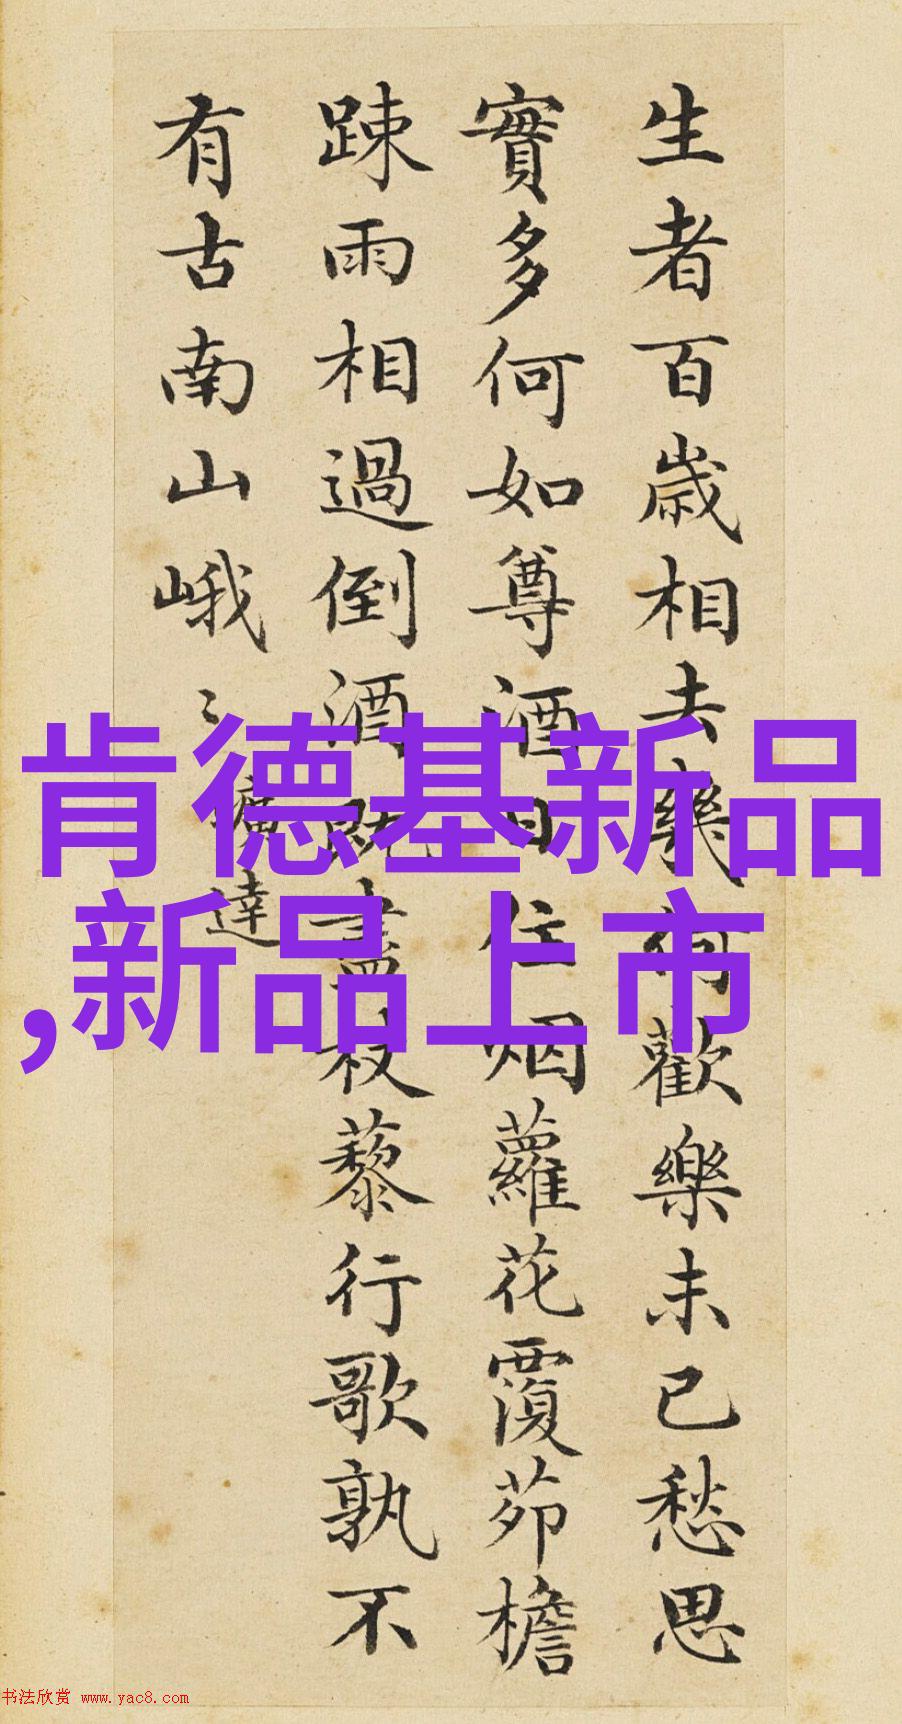 生者百歲相去幾何歡樂未已愁思
實多何如尊酒日往烟蘿花覆茆檐
踈雨相過倒酒既盡杖藜行歌孰不
有古南山峨〻
曠達
肯德基新品
,新品上市
书法欣赏 www.yac8.com